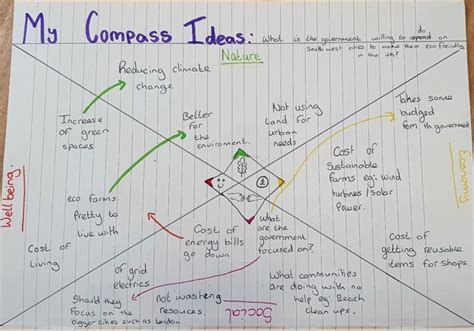 My Compass Ideas:
What is the government willing to do
South west cities to make them eco friendly
in the uk?
Nature
Reducing climate
change
Increase
of green
spaces
Better
for
the
enviroment
Not using
land for
urban
needs
Takes some
budged
from the government
Wellbeing.
Economy
eco farms.
Pretty to
live with
Cost of
Sustainable
farms eg: wind
turbines / solar
Power.
Cost of
energy bills
go down
What
are the
government
focused on?
Cost of
living
Cost of
getting reusable
items for shops.
of grid
electrics
Should they
focus on the
bigger cities such as london
not wasteng
resources
Social
What communities
are doing with no
help eg: Beach
clean ups.